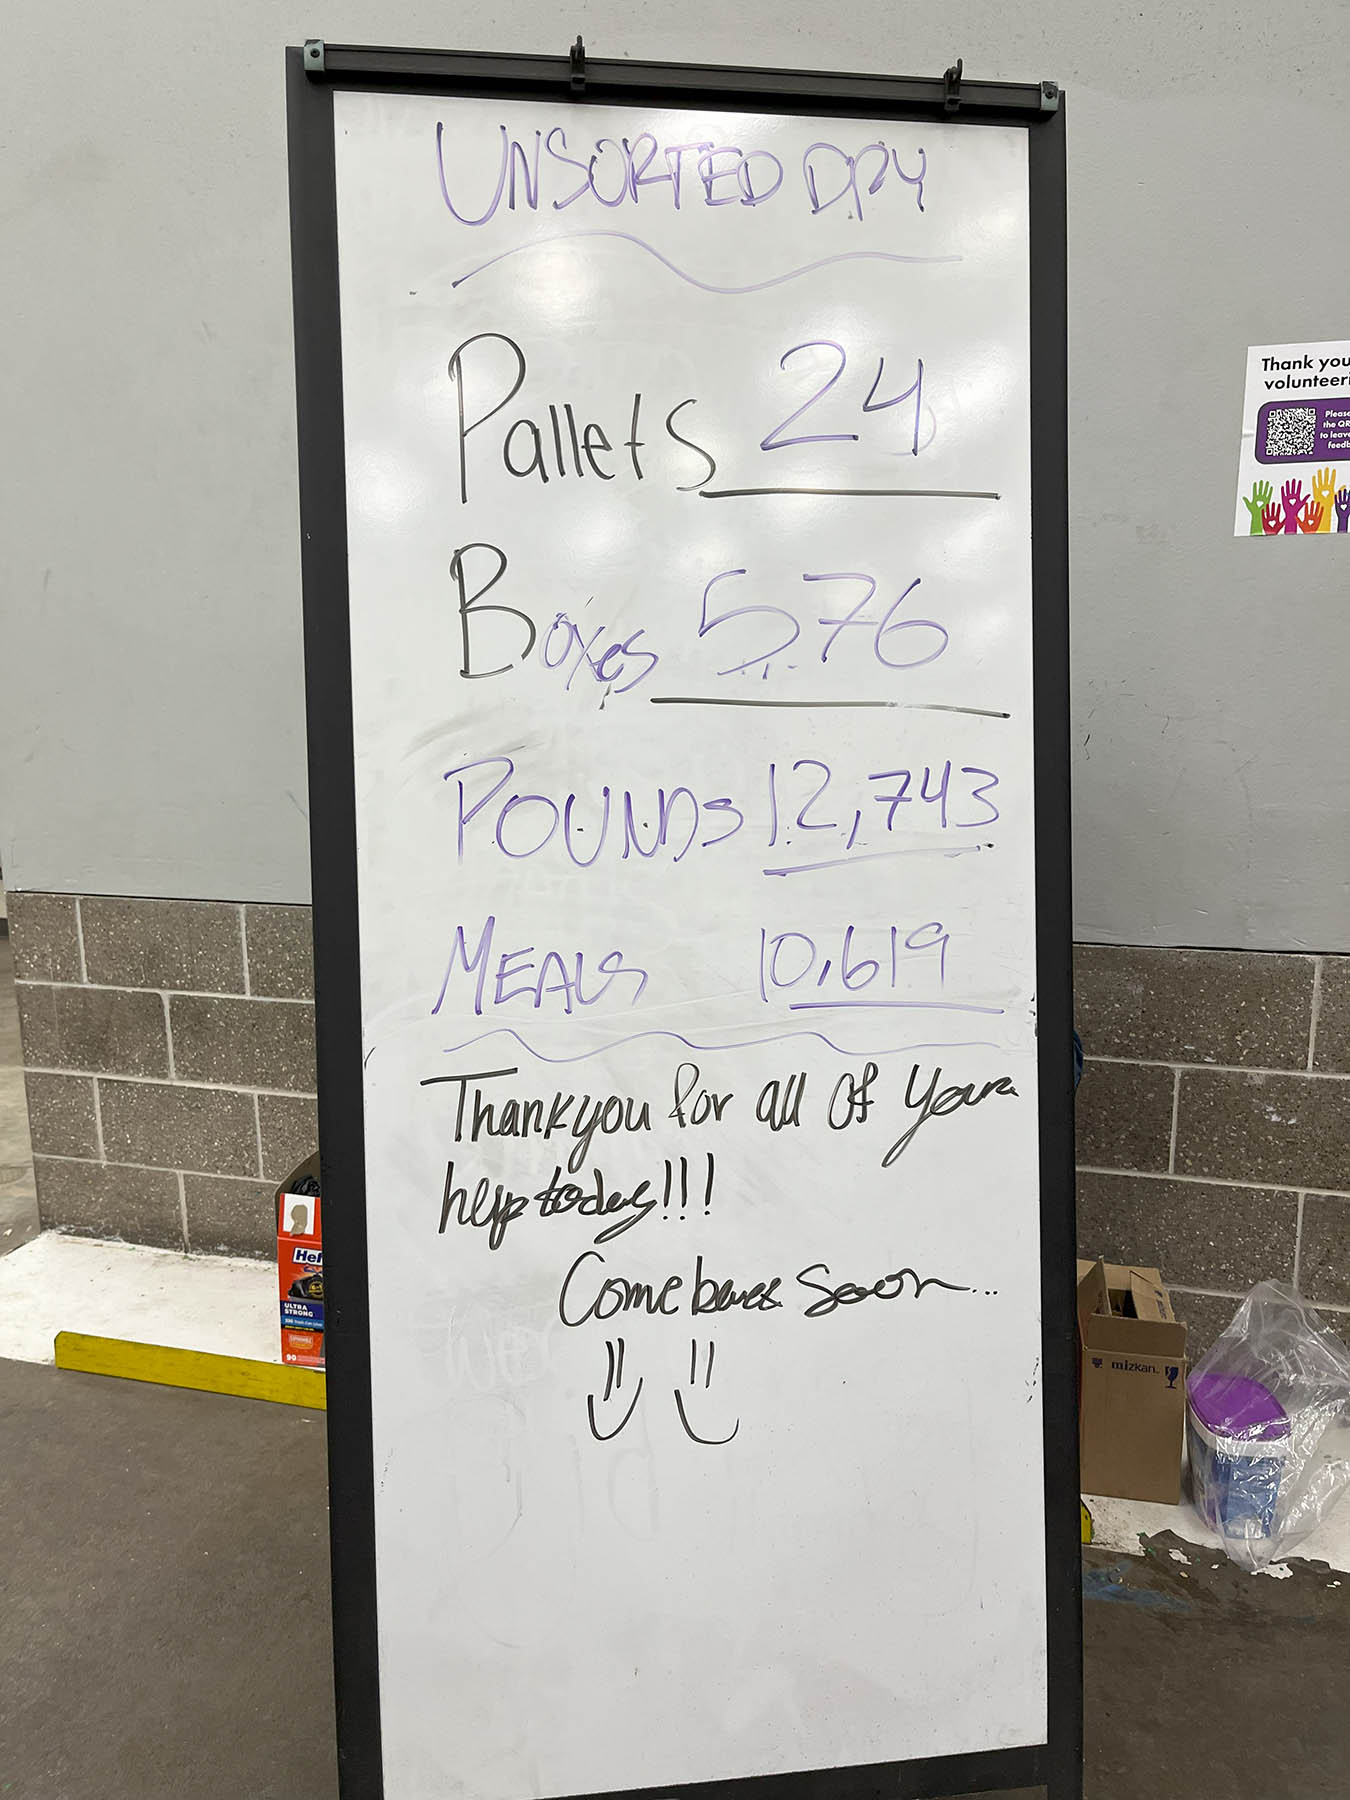 UNSORTED DRY
Pallets 24
Boxes 576
POUNDS 12,743
MEALS 10,619
Thank you for all of your
help today!!!
Come back soon...
Thank you
volunteeri
Please
the QR
to leave
feedb
Hef
ULTRA
STRONG
90
mizkan